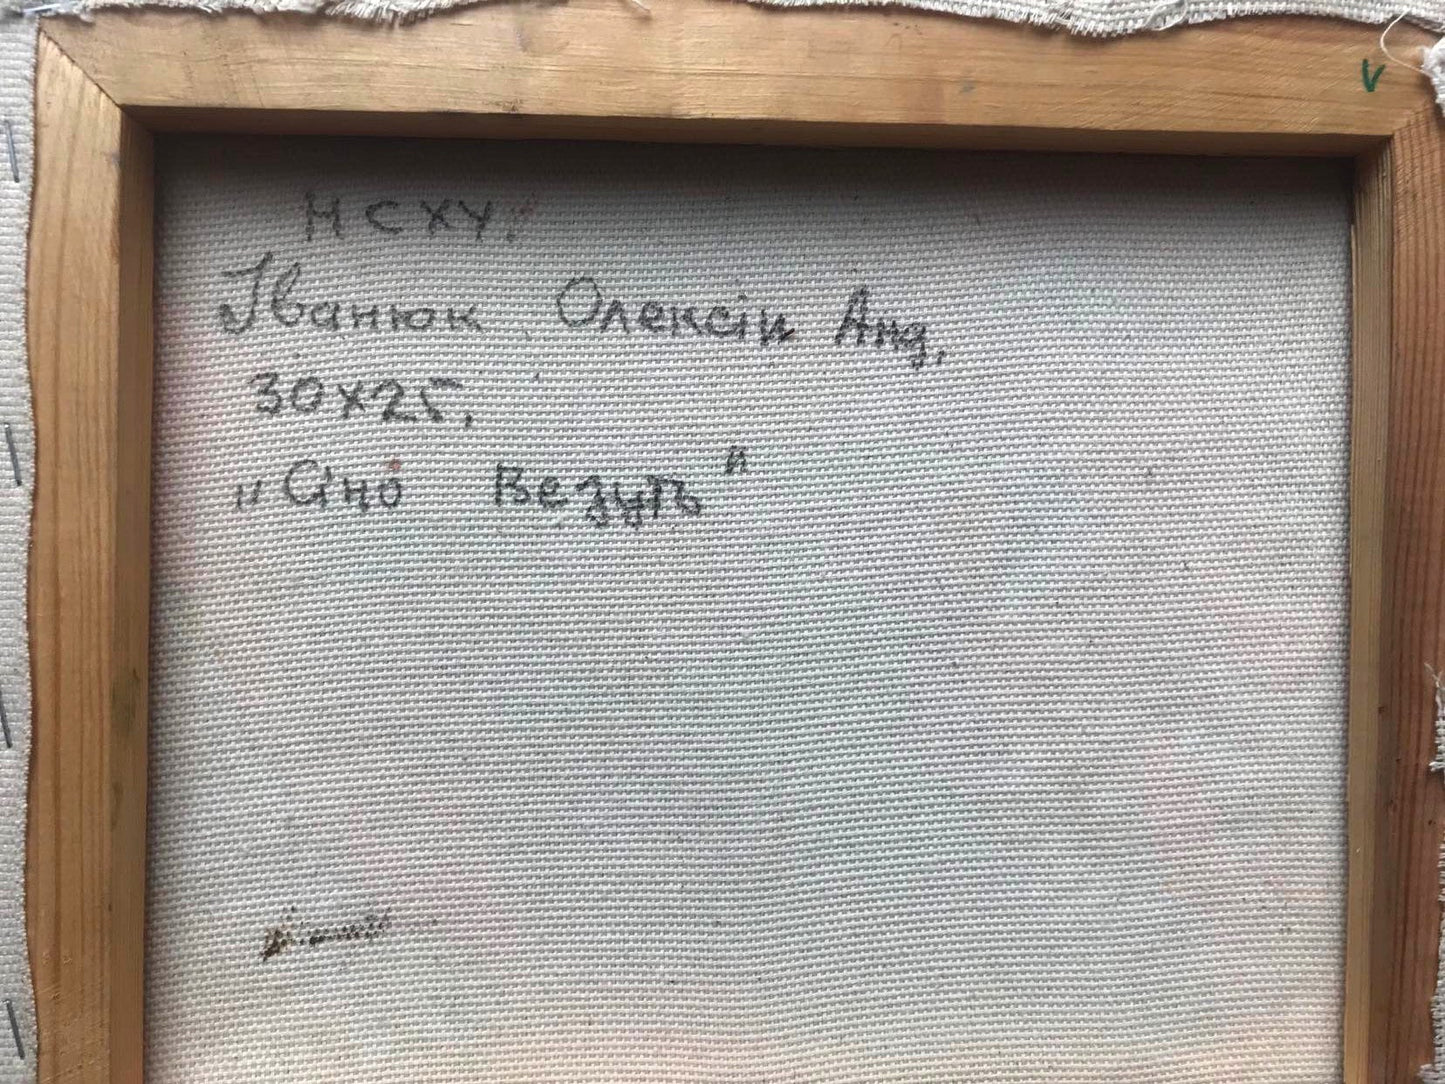 НСХУ.
Іванюк Олексій Анд,
30х25,
„Сіно Везуть"